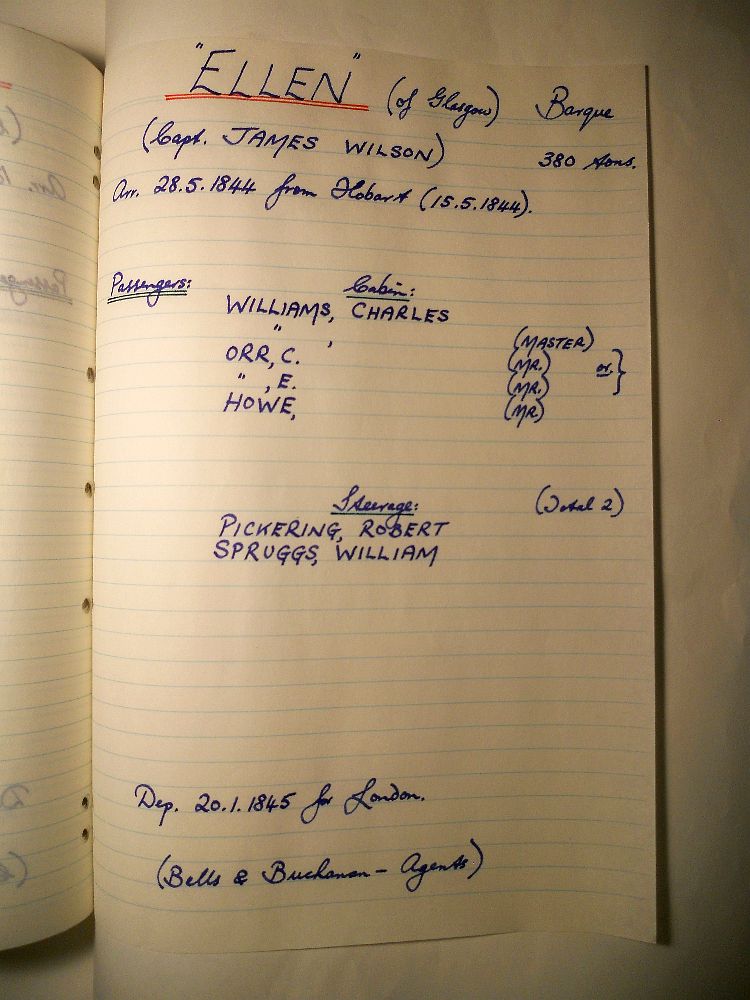 "ELLEN" (of Glasgow) Barque
(Capt. JAMES WILSON) 380 tons.
Arr. 28.5.1844 from Hobart (15.5.1844).
Passengers: Cabin:
WILLIAMS, CHARLES
" , (MASTER)
ORR, C. (MR.) or }
" , E. (MR.)
HOWE, (MR)
Steerage: (Total 2)
PICKERING, ROBERT
SPRUGGS, WILLIAM
Dep. 20.1.1845 for London.
(Bells & Buchanan - Agents)